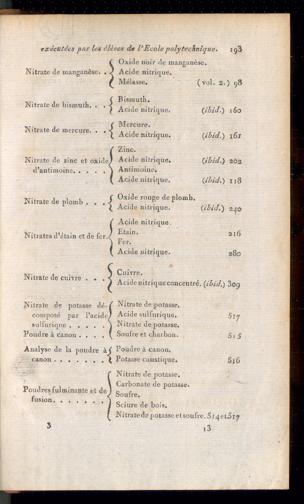 exécutées par les élèves de l'Ecole polytechnique. 193
Oxide noir de manganèse.
Nitrate de manganèse. . Acide nitrique.
Mélasse. (vol. 2.) 98
Bismuth.
Nitrate de bismuth. . . Acide nitrique. (ibid.) 160
Mercure.
Nitrate de mercure. . . Acide nitrique. (ibid.) 161
Zinc.
Nitrate de zinc et oxide Acide nitrique. (ibid.) 202
d'antimoine. . . . . Antimoine.
Acide nitrique. (ibid.) 118
Oxide rouge de plomb.
Nitrate de plomb . . . Acide nitrique. (ibid.) 240
Acide nitrique
Nitrates d'étain et de fer. Etain. 216
Fer.
Acide nitrique. 280
Cuivre.
Nitrate de cuivre . . . Acide nitrique concentré. (ibid.) 309
Nitrate de potasse dé- Nitrate de potasse.
composé par l'acide Acide sulfurique. 517
sulfurique . . . . . Nitrate de potasse.
Poudre à canon . . . . Soufre et charbon. 515
Analyse de la poudre à Poudre à canon.
canon . . . . . . . Potasse caustique. 516
Nitrate de potasse.
Carbonate de potasse.
Poudres fulminante et de Soufre.
fusion. . . . . . . Sciure de bois.
Nitrate de potasse et soufre. 514 et 517
3 13